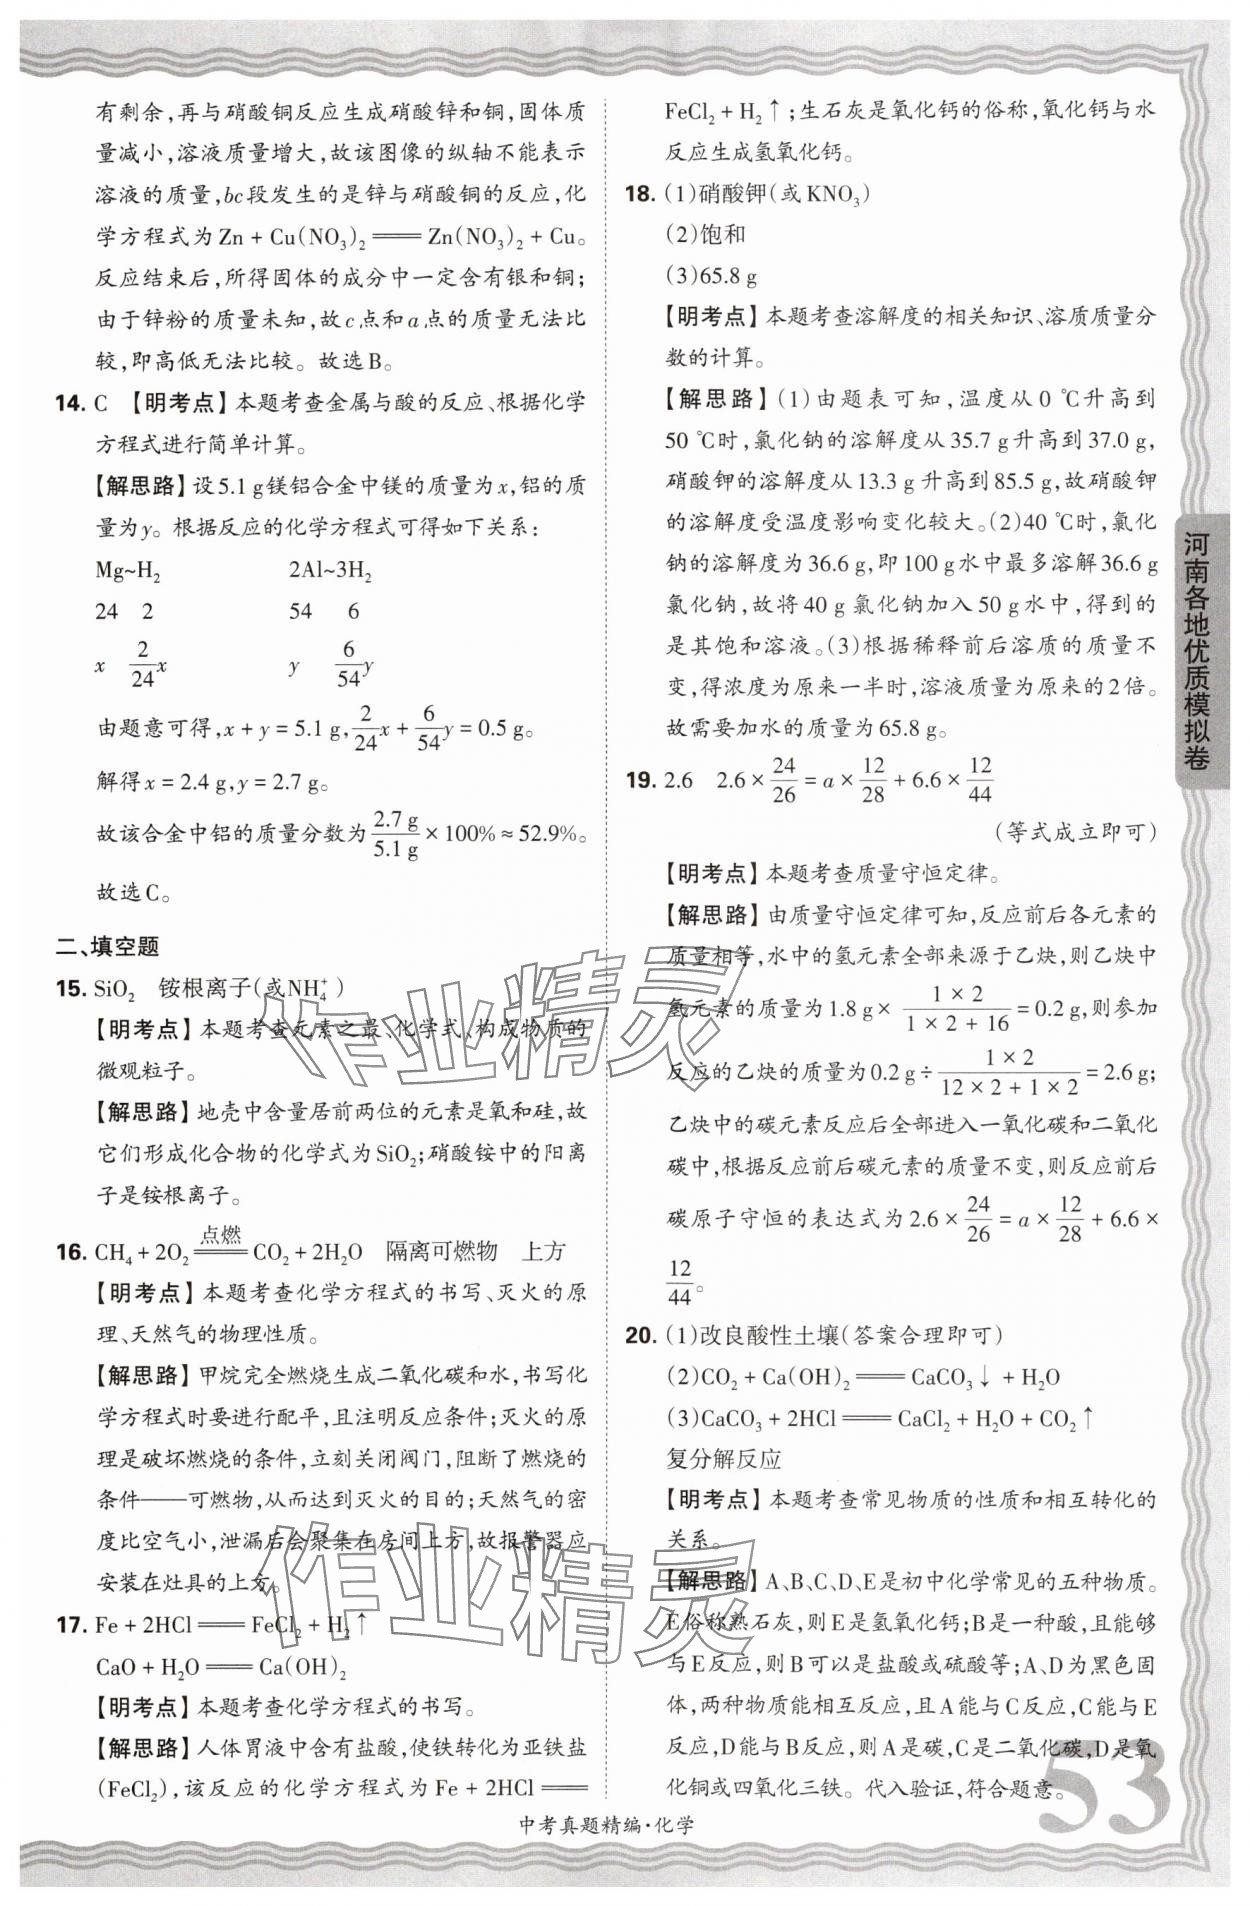 有剩余,再与硝酸铜反应生成硝酸锌和铜,固体质
量减小,溶液质量增大,故该图像的纵轴不能表示
溶液的质量,bc段发生的是锌与硝酸铜的反应,化
学方程式为 Zn + Cu(NO₃)₂ ══ Zn(NO₃)₂ + Cu。
反应结束后,所得固体的成分中一定含有银和铜;
由于锌粉的质量未知,故c点和a点的质量无法比
较,即高低无法比较。故选B。
14. C 【明考点】本题考查金属与酸的反应、根据化学
方程式进行简单计算。
【解思路】设5.1 g镁铝合金中镁的质量为x,铝的质
量为y。根据反应的化学方程式可得如下关系:
Mg~H₂ 2Al~3H₂
24 2 54 6
x 2/24 x y 6/54 y
由题意可得,x + y = 5.1 g, 2/24 x + 6/54 y = 0.5 g。
解得x = 2.4 g,y = 2.7 g。
故该合金中铝的质量分数为 2.7 g/5.1 g × 100% ≈ 52.9%。
故选C。
二、填空题
15. SiO₂ 铵根离子(或NH₄⁺)
【明考点】本题考查元素之最、化学式、构成物质的
微观粒子。
【解思路】地壳中含量居前两位的元素是氧和硅,故
它们形成化合物的化学式为SiO₂;硝酸铵中的阳离
子是铵根离子。
16. CH₄ + 2O₂ ══点燃══ CO₂ + 2H₂O 隔离可燃物 上方
【明考点】本题考查化学方程式的书写、灭火的原
理、天然气的物理性质。
【解思路】甲烷完全燃烧生成二氧化碳和水,书写化
学方程式时要进行配平,且注明反应条件;灭火的原
理是破坏燃烧的条件,立刻关闭阀门,阻断了燃烧的
条件——可燃物,从而达到灭火的目的;天然气的密
度比空气小,泄漏后会聚集在房间上方,故报警器应
安装在灶具的上方。
17. Fe + 2HCl ══ FeCl₂ + H₂↑
CaO + H₂O ══ Ca(OH)₂
【明考点】本题考查化学方程式的书写。
【解思路】人体胃液中含有盐酸,使铁转化为亚铁盐
(FeCl₂),该反应的化学方程式为 Fe + 2HCl ══
FeCl₂ + H₂↑;生石灰是氧化钙的俗称,氧化钙与水
反应生成氢氧化钙。
18. (1)硝酸钾(或 KNO₃)
(2)饱和
(3)65.8 g
【明考点】本题考查溶解度的相关知识、溶质质量分
数的计算。
【解思路】(1)由题表可知,温度从0 ℃升高到
50 ℃时,氯化钠的溶解度从35.7 g升高到37.0 g,
硝酸钾的溶解度从13.3 g升高到85.5 g,故硝酸钾
的溶解度受温度影响变化较大。(2)40 ℃时,氯化
钠的溶解度为36.6 g,即100 g水中最多溶解36.6 g
氯化钠,故将40 g氯化钠加入50 g水中,得到的
是其饱和溶液。(3)根据稀释前后溶质的质量不
变,得浓度为原来一半时,溶液质量为原来的2倍。
故需要加水的质量为65.8 g。
19. 2.6 2.6 × 24/26 = a × 12/28 + 6.6 × 12/44
(等式成立即可)
【明考点】本题考查质量守恒定律。
【解思路】由质量守恒定律可知,反应前后各元素的
质量相等,水中的氢元素全部来源于乙炔,则乙炔中
氢元素的质量为1.8 g × (1 × 2)/(1 × 2 + 16) = 0.2 g,则参加
反应的乙炔的质量为0.2 g ÷ (1 × 2)/(12 × 2 + 1 × 2) = 2.6 g;
乙炔中的碳元素反应后全部进入一氧化碳和二氧化
碳中,根据反应前后碳元素的质量不变,则反应前后
碳原子守恒的表达式为2.6 × 24/26 = a × 12/28 + 6.6 ×
12/44。
20. (1)改良酸性土壤(答案合理即可)
(2)CO₂ + Ca(OH)₂ ══ CaCO₃↓ + H₂O
(3)CaCO₃ + 2HCl ══ CaCl₂ + H₂O + CO₂↑
复分解反应
【明考点】本题考查常见物质的性质和相互转化的
关系。
【解思路】A、B、C、D、E是初中化学常见的五种物质。
E俗称熟石灰,则E是氢氧化钙;B是一种酸,且能够
与E反应,则B可以是盐酸或硫酸等;A、D为黑色固
体,两种物质能相互反应,且A能与C反应,C能与E
反应,D能与B反应,则A是碳,C是二氧化碳,D是氧
化铜或四氧化三铁。代入验证,符合题意。
河南各地优质模拟卷
作业精灵
作业精灵
中考真题精编·化学
53